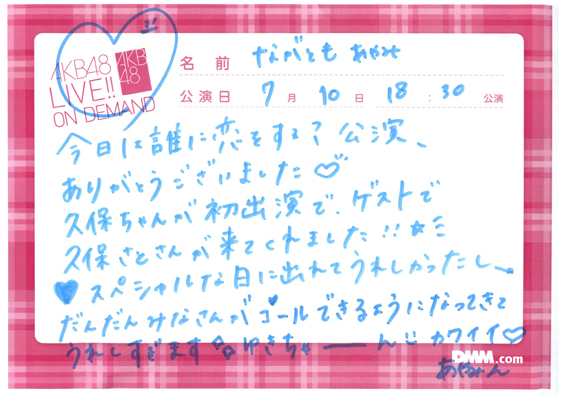 AKB48
LIVE!!
ON DEMAND
AKB
48
名前 ながとも あやみ
公演日 7月 10日 18:30 公演
今日は誰に恋をする?公演、
ありがとうございました♡
久保ちゃんが初出演で、ゲストで
久保さとさんが来てくれました!!☆ミ
♥スペシャルな日に出れてうれしかったし、
だんだんみなさんがコールできるようになってきて
うれしすぎます ゆきちゃーーん!! カワイイ♡
DMM.com